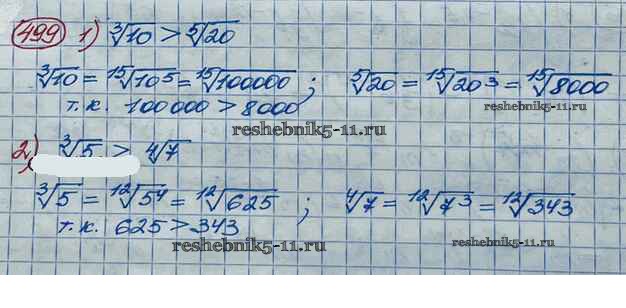 499 1) ∛10 > ⁵√20
∛10 = ¹⁵√10⁵ = ¹⁵√100000 ; ⁵√20 = ¹⁵√20³ = ¹⁵√8000
т.к. 100000 > 8000
reshebnik5-11.ru
reshebnik5-11.ru
2) ∛5 > ⁴√7
∛5 = ¹²√5⁴ = ¹²√625 ; ⁴√7 = ¹²√7³ = ¹²√343
т.к. 625 > 343
reshebnik5-11.ru
reshebnik5-11.ru